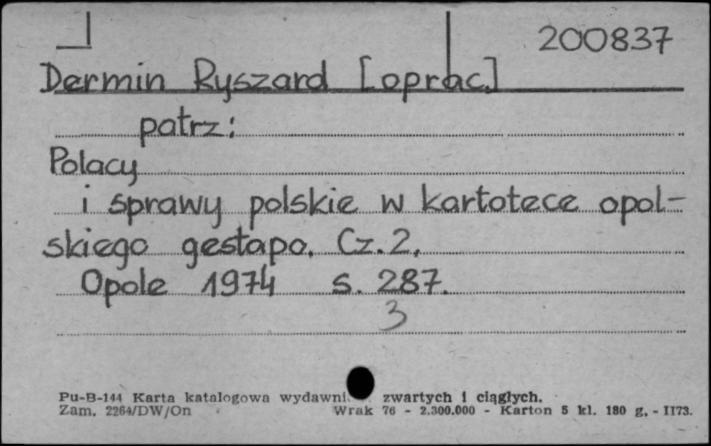 200837
Dermin Ryszard [oprac.]
patrz:
Polacy
i sprawy polskie w kartotece opol-
skiego gestapo. Cz. 2.
Opole 1974 s. 287.
3
Pu-B-144 Karta katalogowa wydawni zwartych i ciągłych.
Zam. 2264/DW/On Wrak 76 - 2.300.000 - Karton 5 kl. 180 g. - II73.